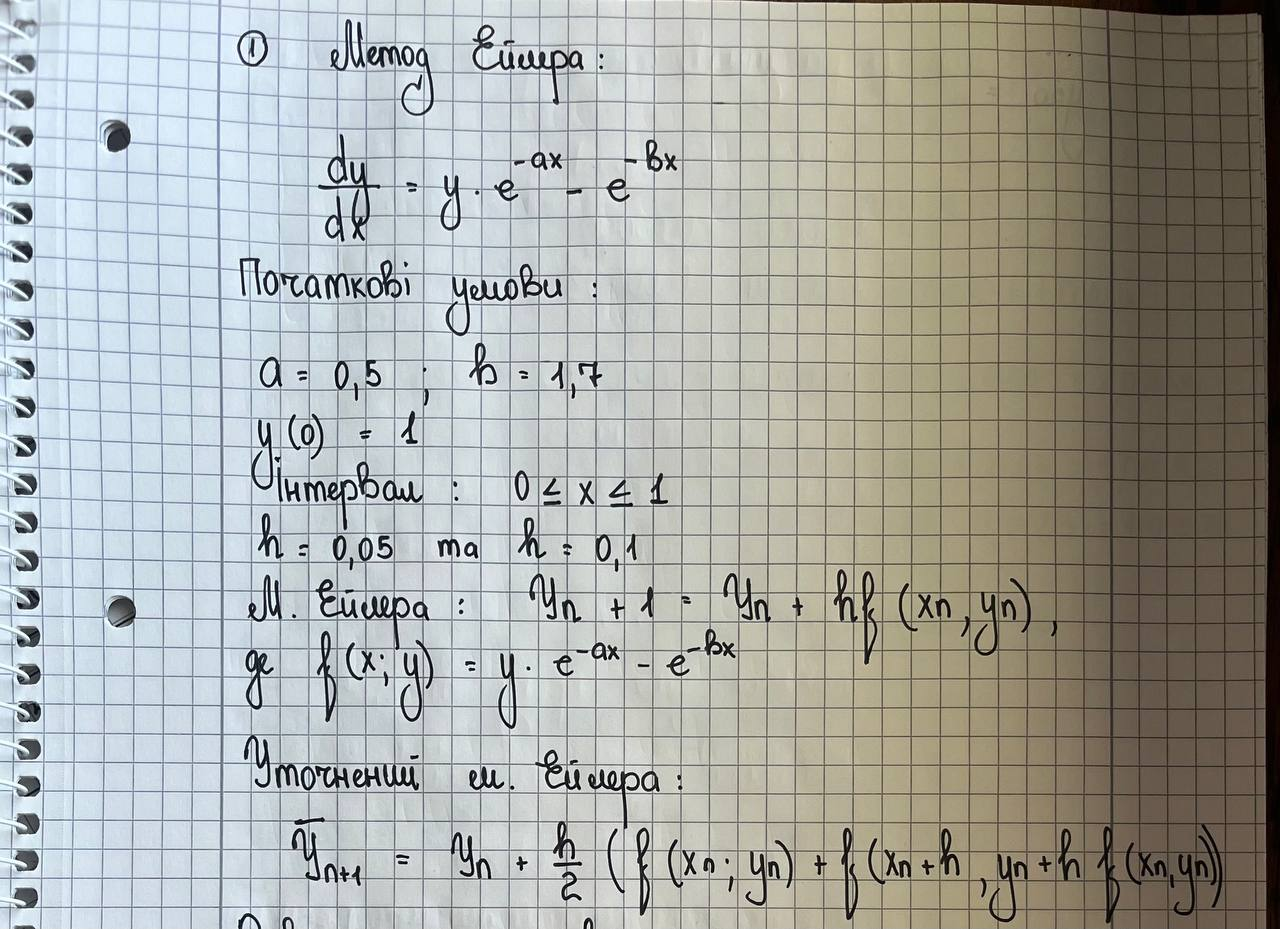 ① Метод Ейлера:
dy/dx = y · e^-ax - e^-bx
Початкові умови:
a = 0,5 ; b = 1,7
y(0) = 1
Інтервал: 0 ≤ x ≤ 1
h = 0,05 та h = 0,1
М. Ейлера: Yn + 1 = Yn + hf (xn, yn),
де f(x; y) = y · e^-ax - e^-bx
Уточнений м. Ейлера:
Ȳn+1 = Yn + h/2 (f (xn; yn) + f (xn + h, yn + h f(xn, yn))